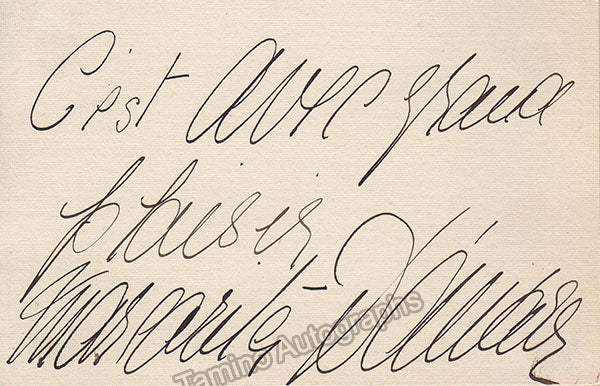 C'est avec grand
plaisir
Marguerite d'Alvarez
Tamino Autographs